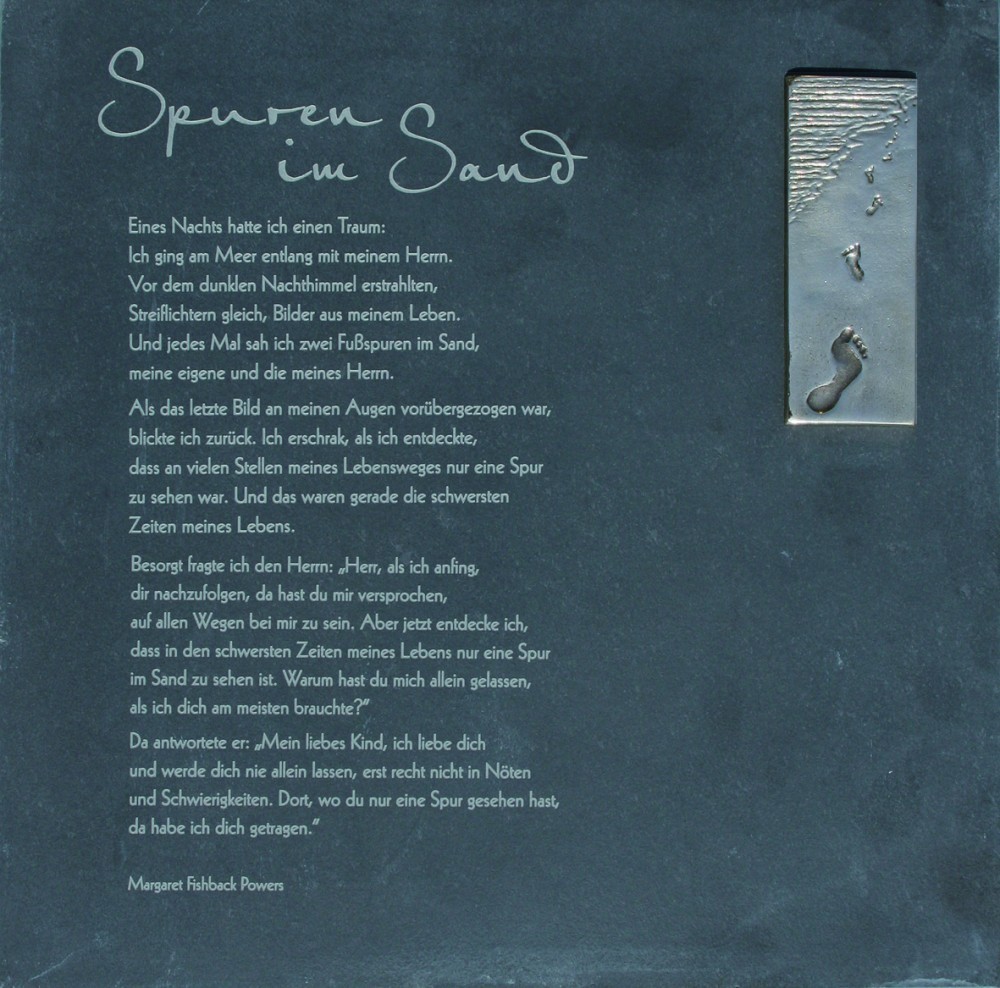 Spuren
im Sand
Eines Nachts hatte ich einen Traum:
Ich ging am Meer entlang mit meinem Herrn.
Vor dem dunklen Nachthimmel erstrahlten,
Streiflichtern gleich, Bilder aus meinem Leben.
Und jedes Mal sah ich zwei Fußspuren im Sand,
meine eigene und die meines Herrn.
Als das letzte Bild an meinen Augen vorübergezogen war,
blickte ich zurück. Ich erschrak, als ich entdeckte,
dass an vielen Stellen meines Lebensweges nur eine Spur
zu sehen war. Und das waren gerade die schwersten
Zeiten meines Lebens.
Besorgt fragte ich den Herrn: „Herr, als ich anfing,
dir nachzufolgen, da hast du mir versprochen,
auf allen Wegen bei mir zu sein. Aber jetzt entdecke ich,
dass in den schwersten Zeiten meines Lebens nur eine Spur
im Sand zu sehen ist. Warum hast du mich allein gelassen,
als ich dich am meisten brauchte?“
Da antwortete er: „Mein liebes Kind, ich liebe dich
und werde dich nie allein lassen, erst recht nicht in Nöten
und Schwierigkeiten. Dort, wo du nur eine Spur gesehen hast,
da habe ich dich getragen.“
Margaret Fishback Powers